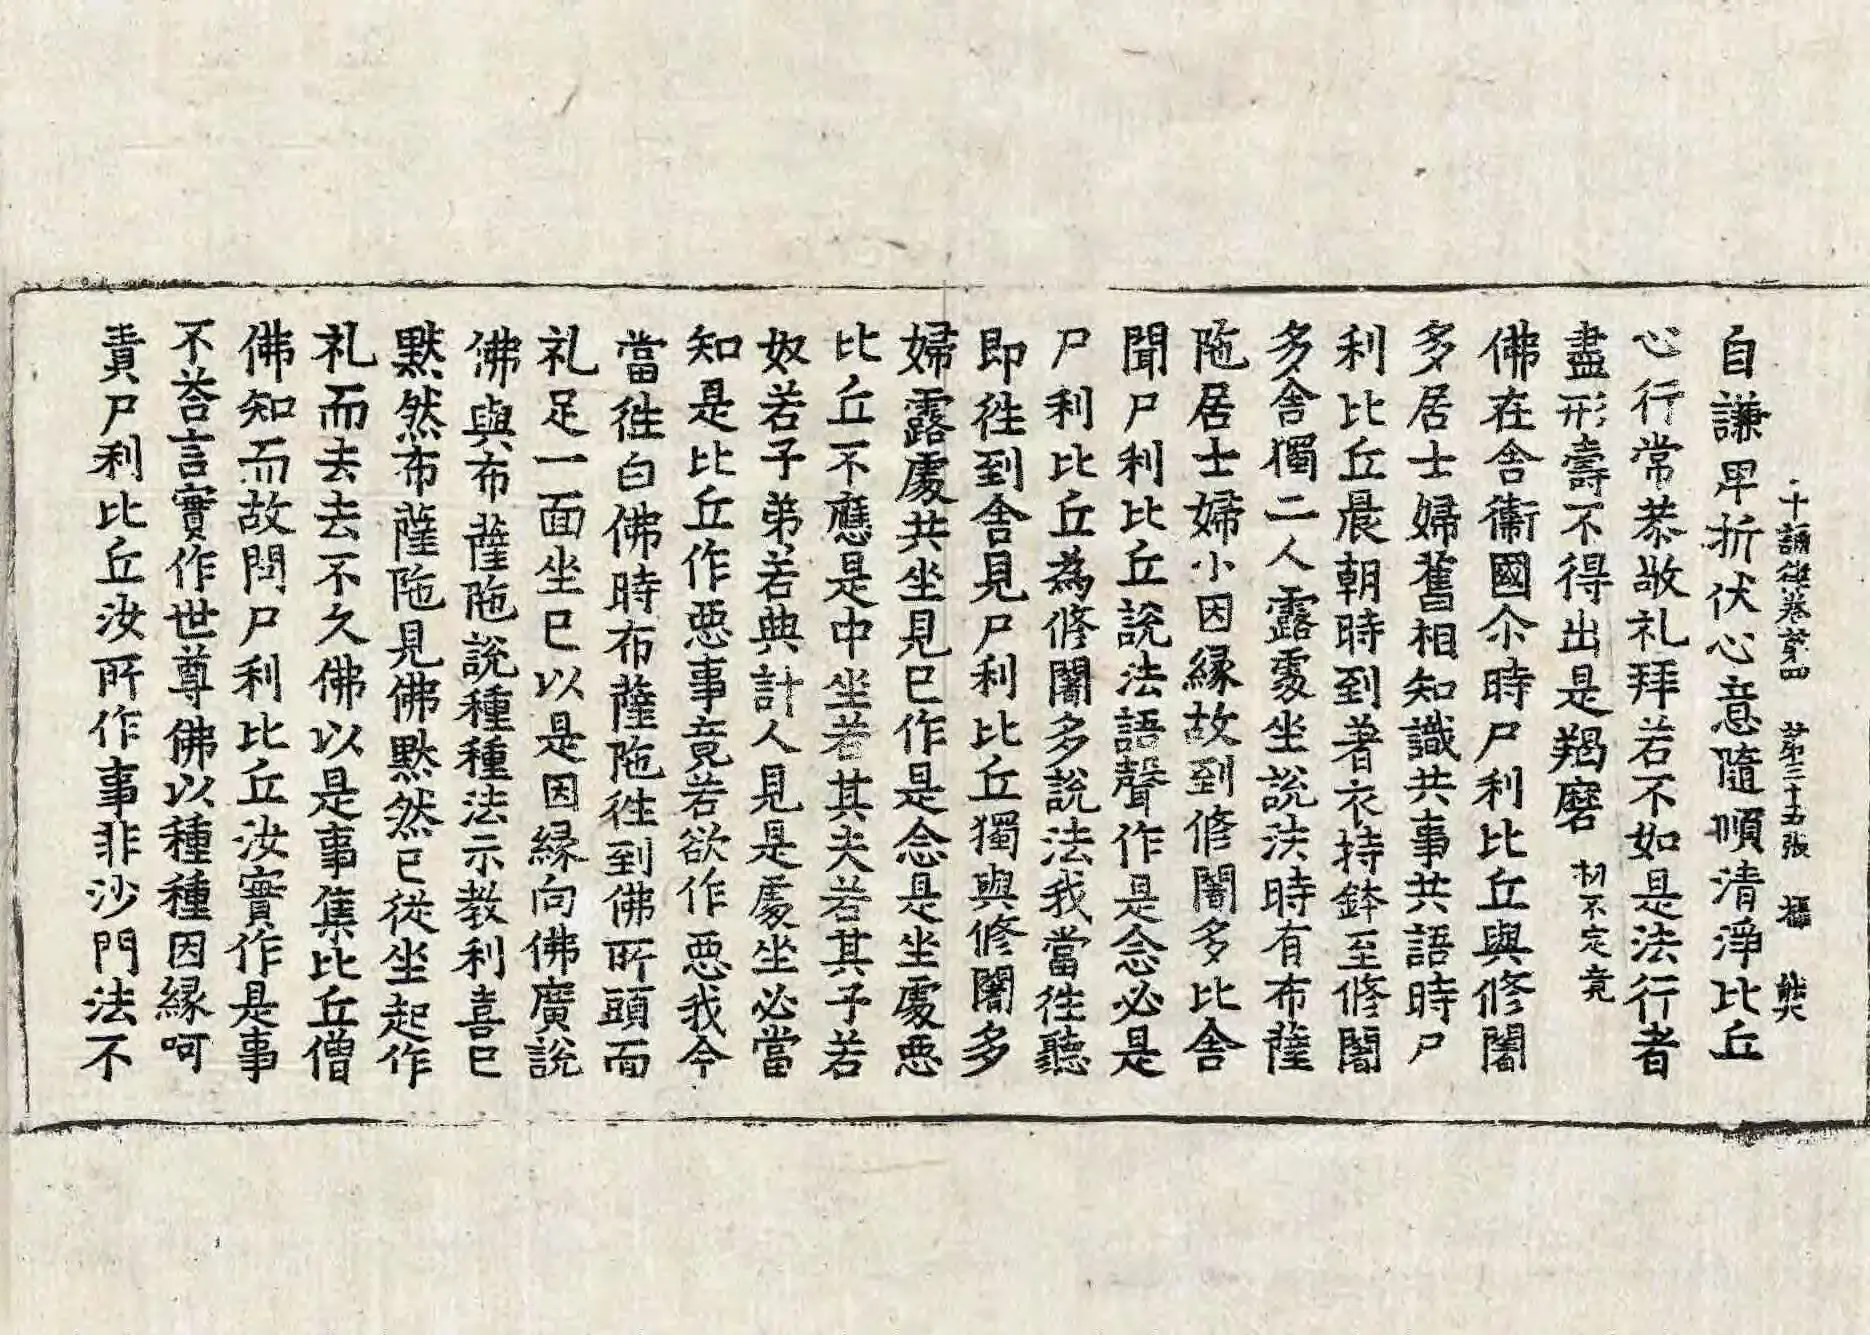 十誦律卷第四　第三十五張　攝
自謙卑折伏心意隨順清淨比丘
心行常恭敬礼拜若不如是法行者
盡形壽不得出是羯磨 初不定竟
佛在舍衞國尒時尸利比丘與修闍
多居士婦舊相知識共事共語時尸
利比丘晨朝時到著衣持鉢至修闍
多舍獨二人露處坐說法時有布薩
陁居士婦小因緣故到修闍多比舍
聞尸利比丘說法語聲作是念必是
尸利比丘為修闍多說法我當徃聽
即徃到舍見尸利比丘獨與修闍多
婦露處共坐見已作是念是坐處惡
比丘不應是中坐若其夫若其子若
奴若子弟若典計人見是處坐必當
知是比丘作惡事竟若欲作惡我今
當徃白佛時布薩陁徃到佛所頭面
礼足一面坐已以是因緣向佛廣說
佛與布薩陁說種種法示教利喜已
黙然布薩陁見佛黙然已從坐起作
礼而去去不久佛以是事集比丘僧
佛知而故問尸利比丘汝實作是事
不荅言實作世尊佛以種種因緣呵
責尸利比丘汝所作事非沙門法不